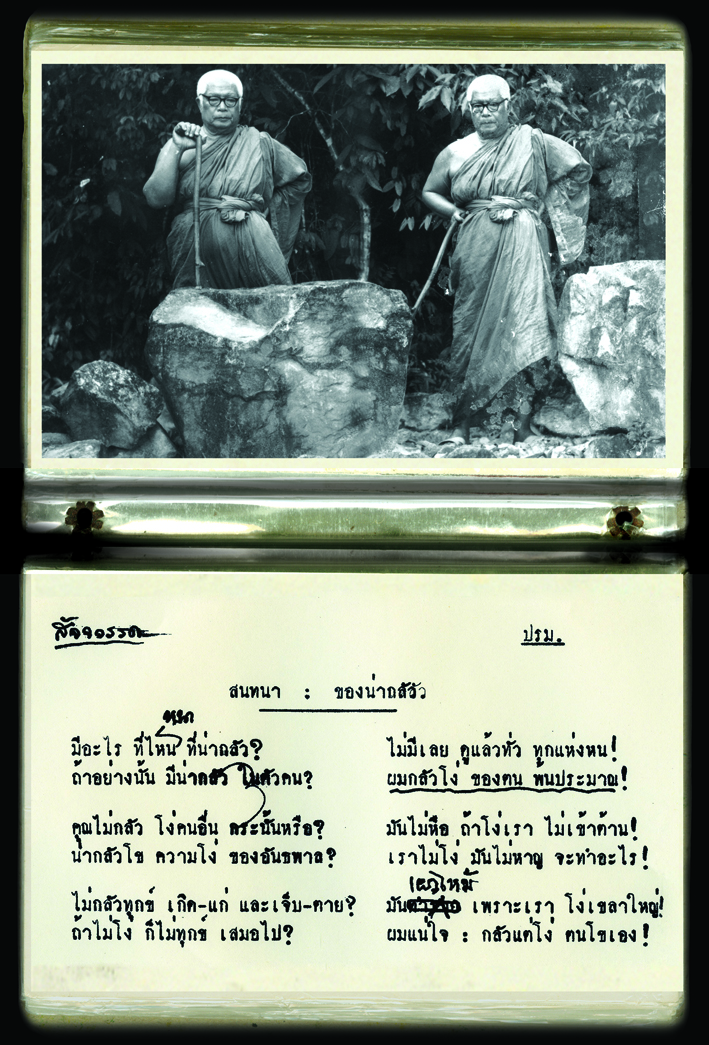 ปรม.
สนทนา : ของน่ากลัว
มีอะไร ที่ไหน ที่น่ากลัว? ไม่มีเลย ดูแล้วทั่ว ทุกแห่งหน!
ถ้าอย่างนั้น มีน่ากลัว ในตัวคน? ผมกลัวโง่ ของตน พ้นประมาณ!
คุณไม่กลัว โง่คนอื่น กระนั้นหรือ? มันไม่หือ ถ้าโง่เรา ไม่เข้าต้าน!
น่ากลัวโข ความโง่ ของอันธพาล? เราไม่โง่ มันไม่หาญ จะทำอะไร!
เผาไหม้
ไม่กลัวทุกข์ เกิด-แก่ และเจ็บ-ตาย? มัน เพราะเรา โง่เขลาใหญ่!
ถ้าไม่โง่ ก็ไม่ทุกข์ เสมอไป? ผมแน่ใจ : กลัวแต่โง่ ตนโขเอง!